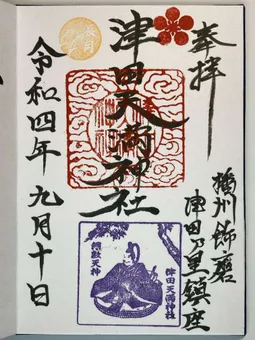 奉拝
播州飾磨
津田乃里鎮座
津田天満神社
令和四年九月十日
津田天満神社